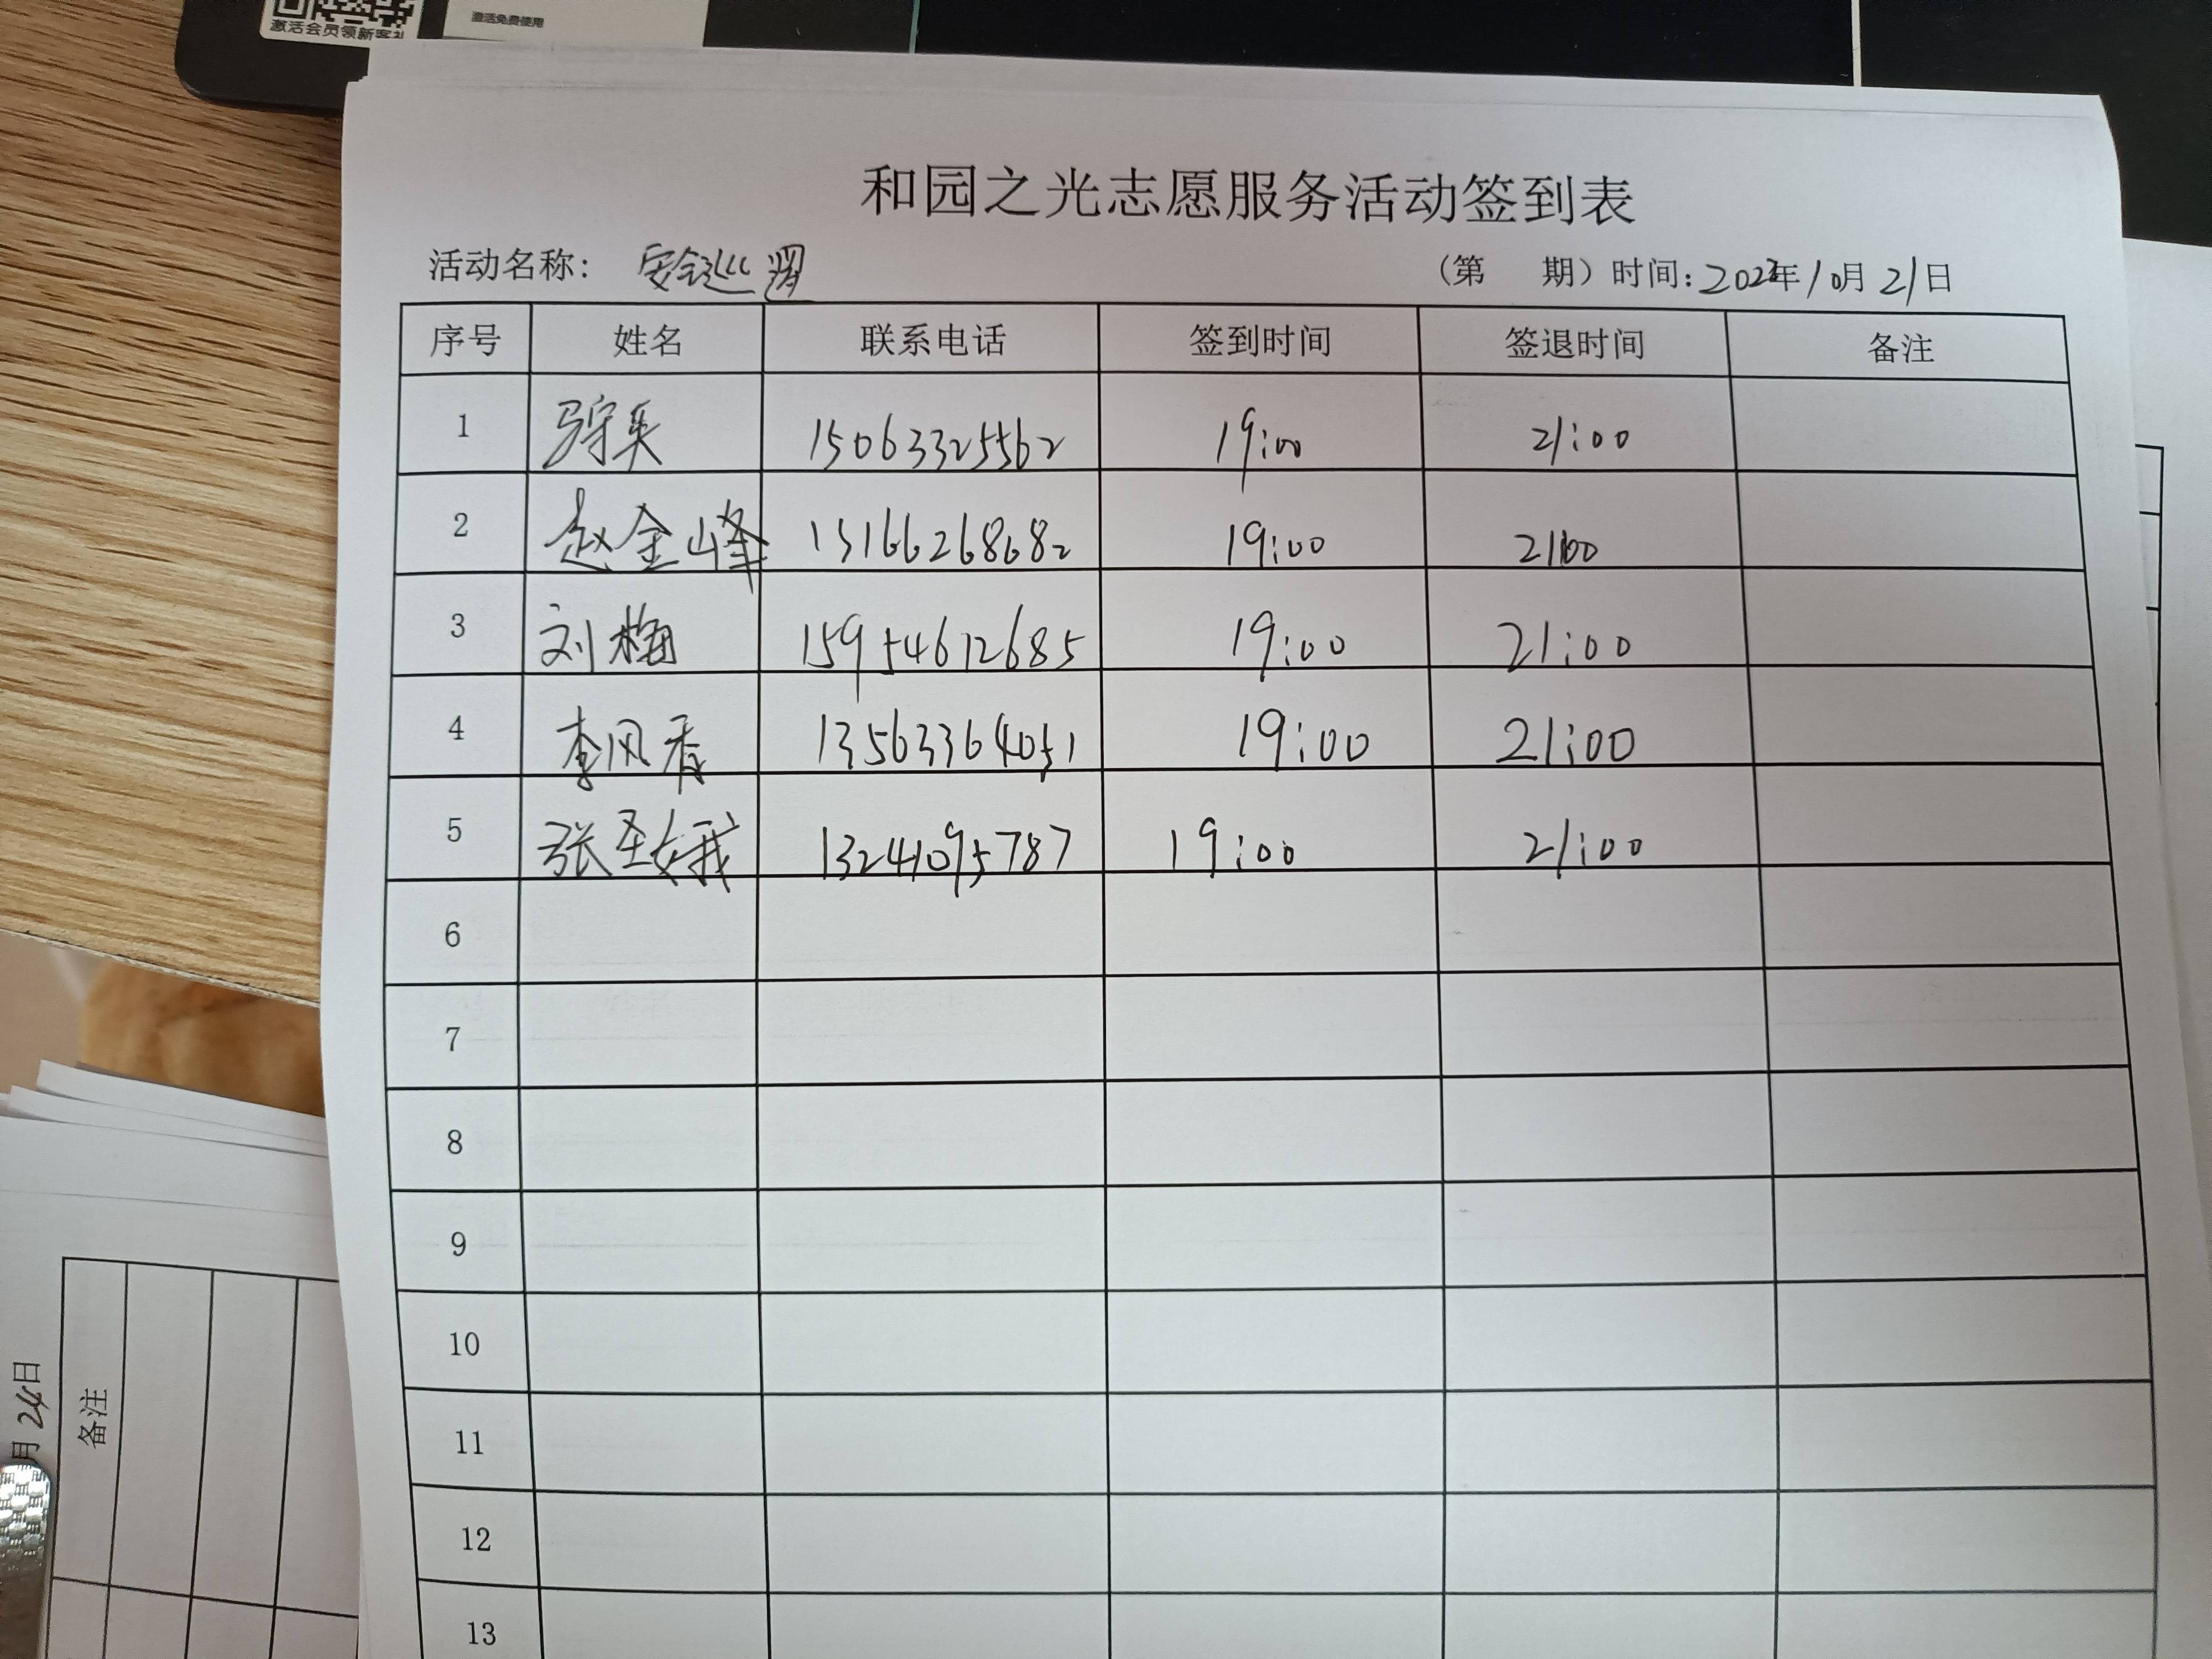 激活会员领新客礼
激活免费使用
和园之光志愿服务活动签到表
活动名称： 安全巡逻 （第 期）时间：2023年10月21日
序号 姓名 联系电话 签到时间 签退时间 备注
1 15063325562 19:00 21:00
2 赵金峰 13166268682 19:00 21:00
3 刘梅 15954612685 19:00 21:00
4 李风香 13563364051 19:00 21:00
5 张圣娥 13241095787 19:00 21:00
6
7
8
9
10
11
12
13
月24日
备注